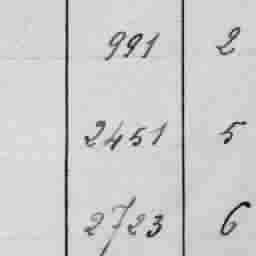 991 2
2451 5
2723 6